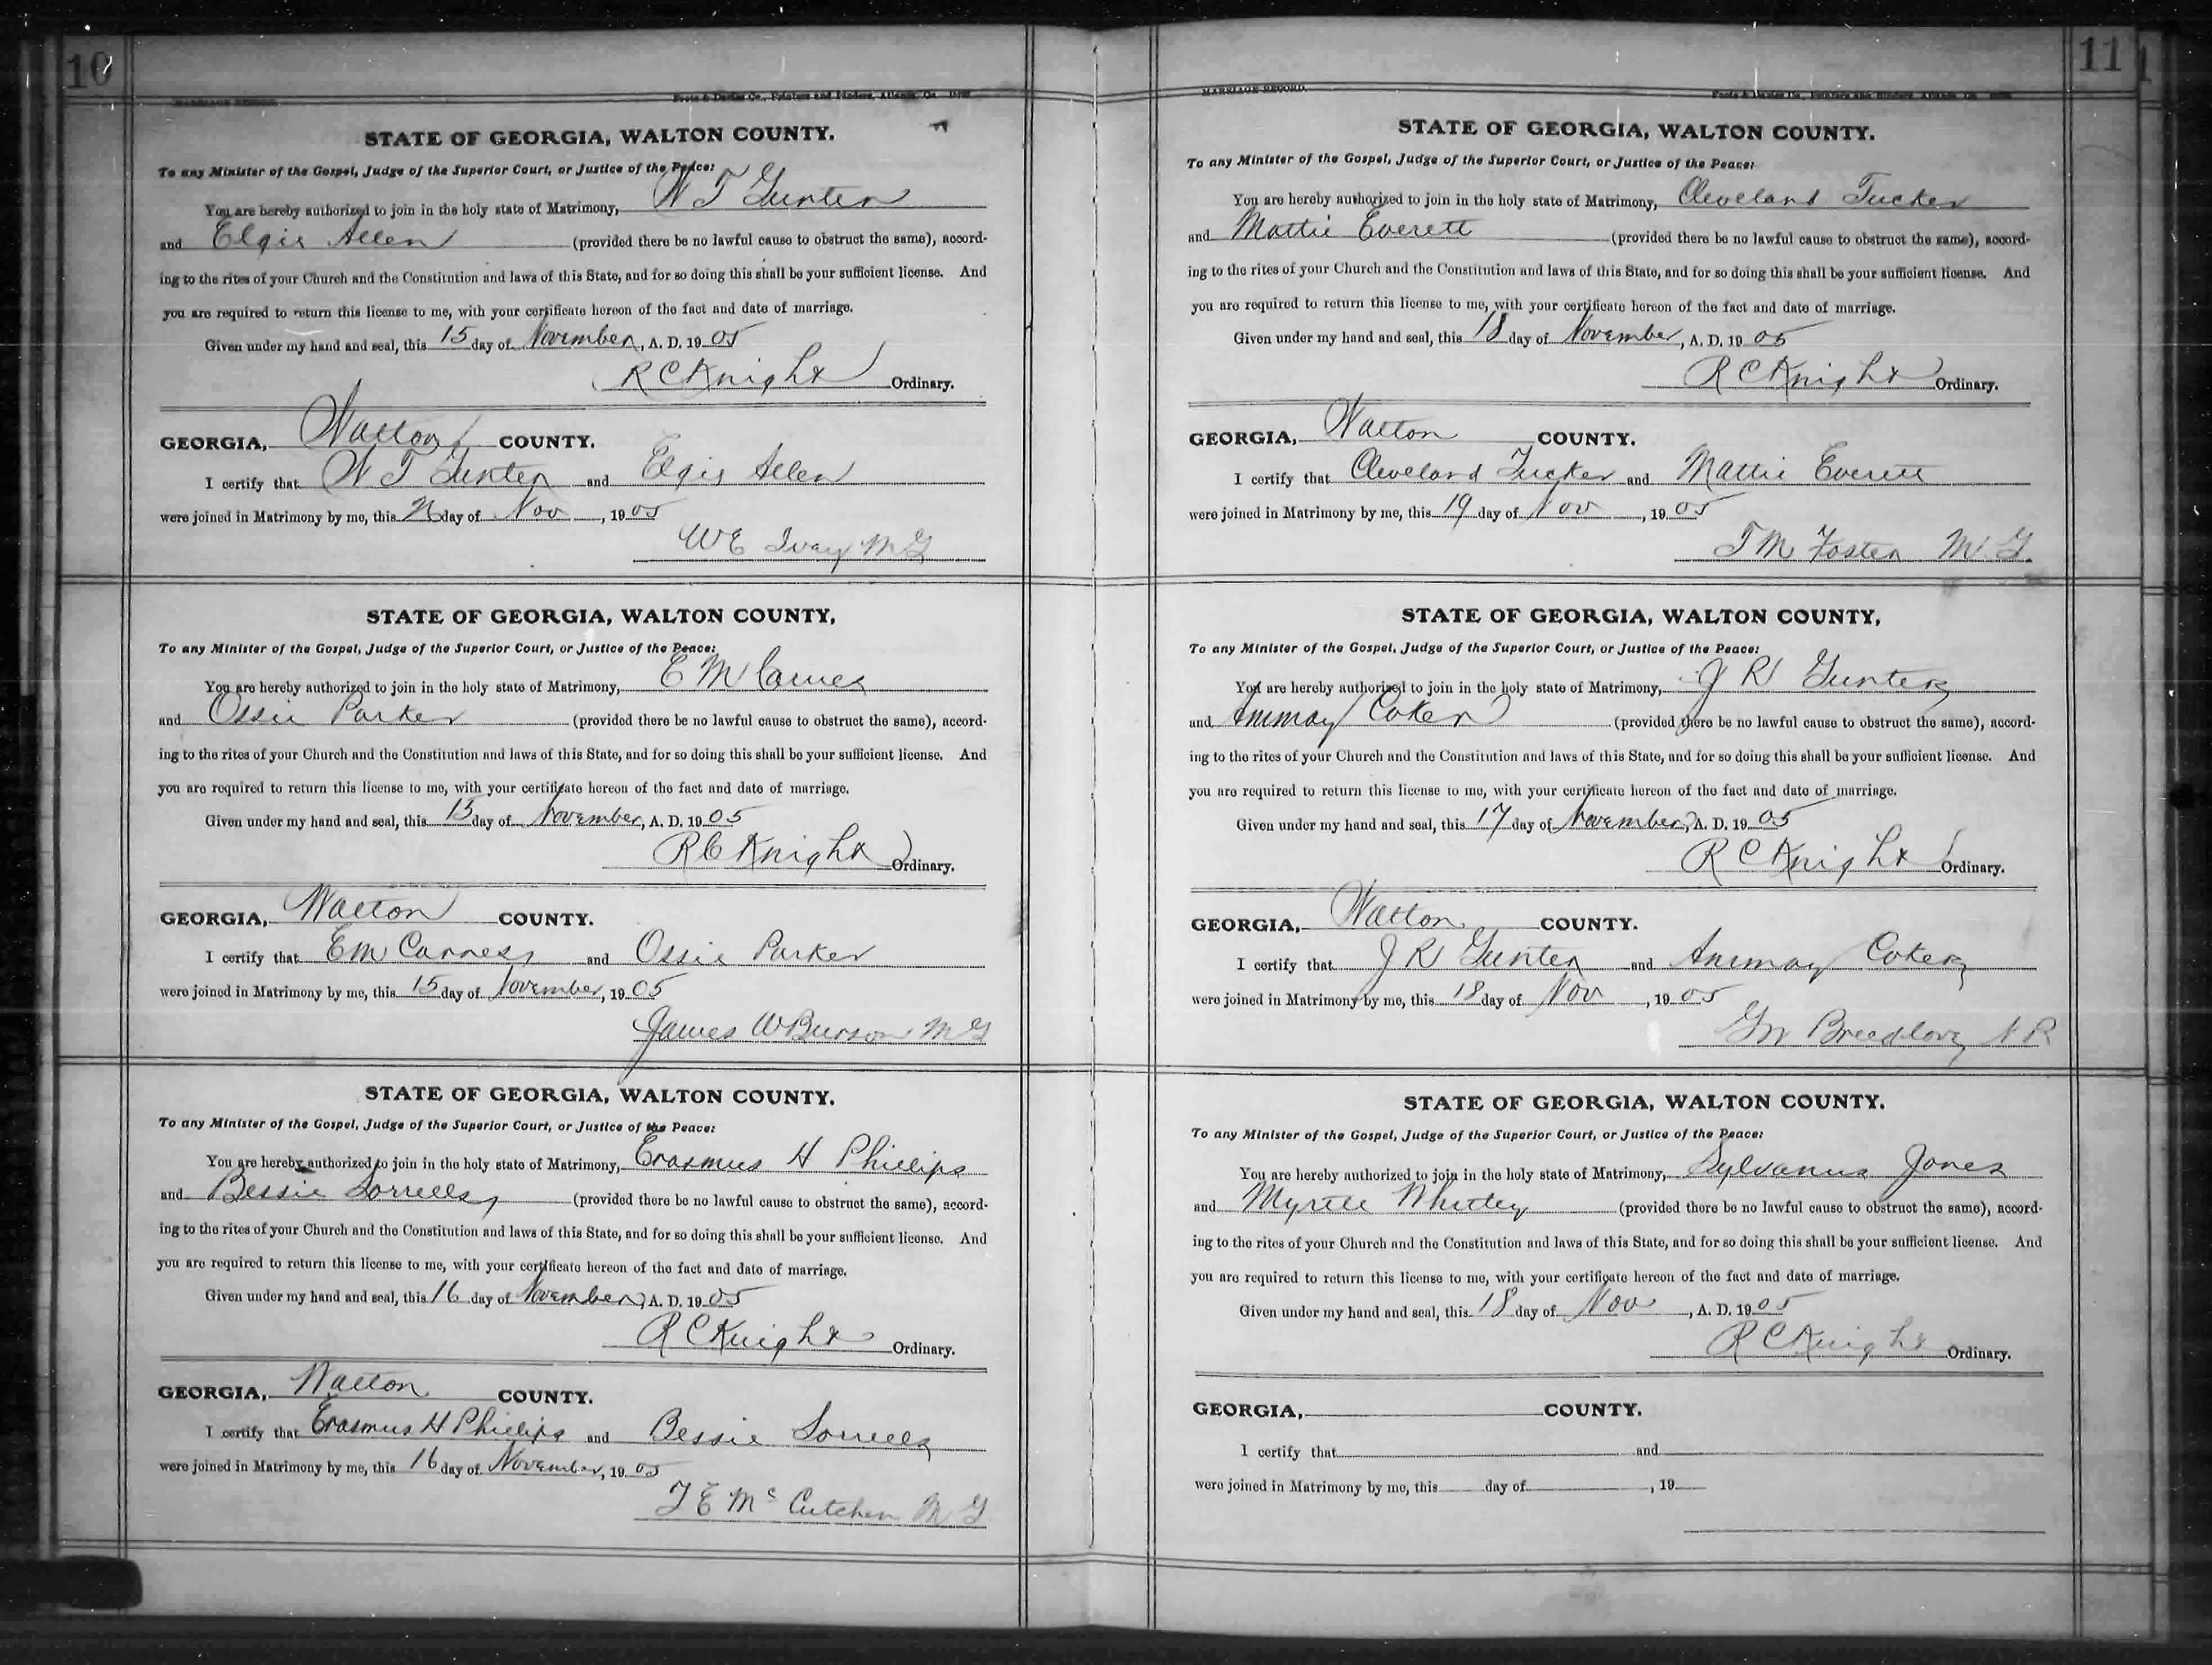 10
MARRIAGE RECORD.
Foote & Davies Co., Printers and Binders, Atlanta, Ga.
STATE OF GEORGIA, WALTON COUNTY.
To any Minister of the Gospel, Judge of the Superior Court, or Justice of the Peace:
You are hereby authorized to join in the holy state of Matrimony, W T Gunter
and Elgis Allen (provided there be no lawful cause to obstruct the same), accord-
ing to the rites of your Church and the Constitution and laws of this State, and for so doing this shall be your sufficient license. And
you are required to return this license to me, with your certificate hereon of the fact and date of marriage.
Given under my hand and seal, this 15 day of November, A. D. 1905
R C Knight Ordinary.
GEORGIA, Walton COUNTY.
I certify that W T Gunter and Elgis Allen
were joined in Matrimony by me, this day of Nov, 1905
W E Ivey M G
STATE OF GEORGIA, WALTON COUNTY,
To any Minister of the Gospel, Judge of the Superior Court, or Justice of the Peace:
You are hereby authorized to join in the holy state of Matrimony, E M Carnes
and Ossie Parker (provided there be no lawful cause to obstruct the same), accord-
ing to the rites of your Church and the Constitution and laws of this State, and for so doing this shall be your sufficient license. And
you are required to return this license to me, with your certificate hereon of the fact and date of marriage.
Given under my hand and seal, this 15 day of November, A. D. 1905
R C Knight Ordinary.
GEORGIA, Walton COUNTY.
I certify that E M Carnes and Ossie Parker
were joined in Matrimony by me, this 15 day of November, 1905
James W Burson M G
STATE OF GEORGIA, WALTON COUNTY.
To any Minister of the Gospel, Judge of the Superior Court, or Justice of the Peace:
You are hereby authorized to join in the holy state of Matrimony, Erasmus H Phillips
and Bessie Sorrells (provided there be no lawful cause to obstruct the same), accord-
ing to the rites of your Church and the Constitution and laws of this State, and for so doing this shall be your sufficient license. And
you are required to return this license to me, with your certificate hereon of the fact and date of marriage.
Given under my hand and seal, this 16 day of November, A. D. 1905
R C Knight Ordinary.
GEORGIA, Walton COUNTY.
I certify that Erasmus H Phillips and Bessie Sorrells
were joined in Matrimony by me, this 16 day of November, 1905
J E McCutchen M G
11
MARRIAGE RECORD.
Foote & Davies Co., Printers and Binders, Atlanta, Ga.
STATE OF GEORGIA, WALTON COUNTY.
To any Minister of the Gospel, Judge of the Superior Court, or Justice of the Peace:
You are hereby authorized to join in the holy state of Matrimony, Cleveland Tucker
and Mattie Everett (provided there be no lawful cause to obstruct the same), accord-
ing to the rites of your Church and the Constitution and laws of this State, and for so doing this shall be your sufficient license. And
you are required to return this license to me, with your certificate hereon of the fact and date of marriage.
Given under my hand and seal, this 18 day of November, A. D. 1905
R C Knight Ordinary.
GEORGIA, Walton COUNTY.
I certify that Cleveland Tucker and Mattie Everett
were joined in Matrimony by me, this 19 day of Nov, 1905
T M Foster M. G.
STATE OF GEORGIA, WALTON COUNTY,
To any Minister of the Gospel, Judge of the Superior Court, or Justice of the Peace:
You are hereby authorized to join in the holy state of Matrimony, J R Gunter
and Animay Coker (provided there be no lawful cause to obstruct the same), accord-
ing to the rites of your Church and the Constitution and laws of this State, and for so doing this shall be your sufficient license. And
you are required to return this license to me, with your certificate hereon of the fact and date of marriage.
Given under my hand and seal, this 17 day of November, A. D. 1905
R C Knight Ordinary.
GEORGIA, Walton COUNTY.
I certify that J R Gunter and Animay Coker
were joined in Matrimony by me, this 18 day of Nov, 1905
Breedlove
STATE OF GEORGIA, WALTON COUNTY.
To any Minister of the Gospel, Judge of the Superior Court, or Justice of the Peace:
You are hereby authorized to join in the holy state of Matrimony, Sylvanus Jones
and Myrtle Whitley (provided there be no lawful cause to obstruct the same), accord-
ing to the rites of your Church and the Constitution and laws of this State, and for so doing this shall be your sufficient license. And
you are required to return this license to me, with your certificate hereon of the fact and date of marriage.
Given under my hand and seal, this 18 day of Nov, A. D. 1905
R C Knight Ordinary.
GEORGIA, COUNTY.
I certify that and
were joined in Matrimony by me, this day of , 19